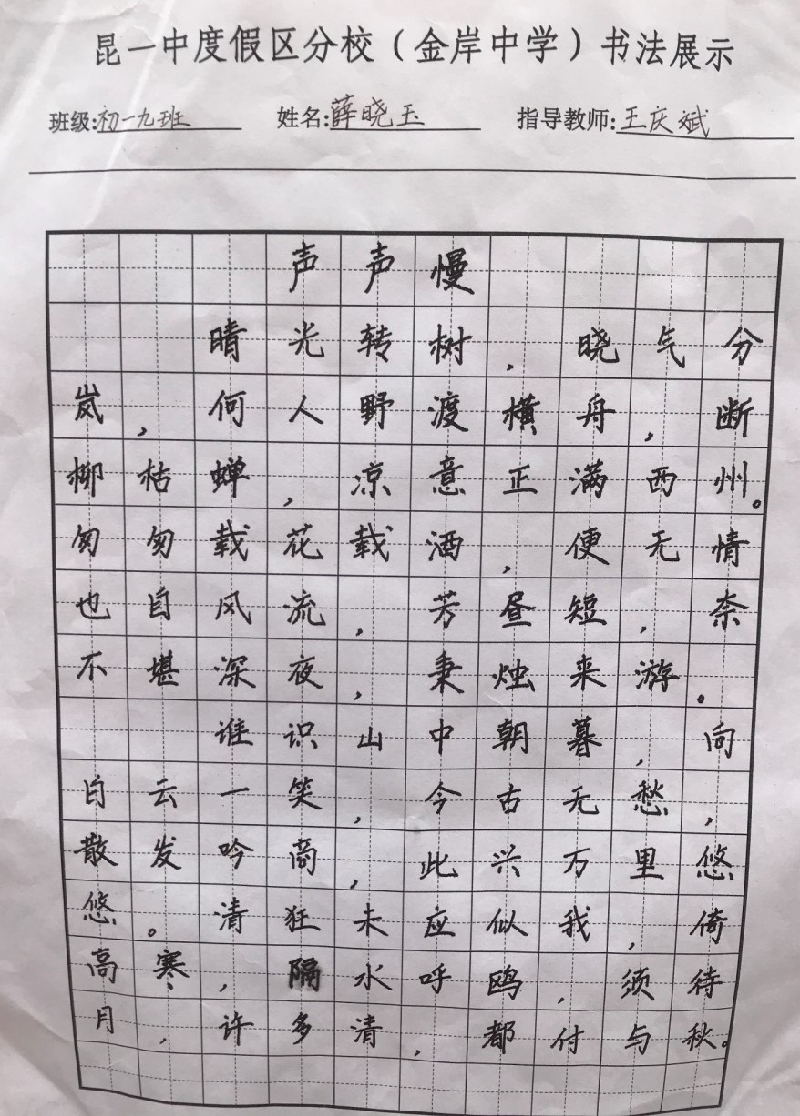 昆一中度假区分校(金岸中学)书法展示
班级:初一九班 姓名:薛晓玉 指导教师:王庆斌
声声慢
晴光转树，晓气分
岚，何人野渡横舟，断
柳枯蝉，凉意正满西州。
匆匆载花载酒，便无情
也自风流，芳昼短，奈
不堪深夜，秉烛来游。
谁识山中朝暮，向
白云一笑，今古无愁，
散发吟商，此兴万里悠
悠。清狂未应似我，倚
高寒，隔水呼鸥，须待
月，许多清，都付与秋。